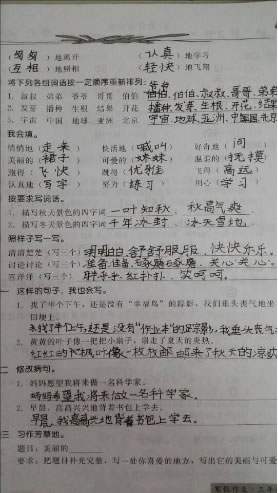 (匆匆)地离开 (认真)地学习
(互相)地照相 (轻快)地飞翔
将下列各组词语按一定顺序重新排列:
1. 叔叔 弟弟 爷爷 哥哥 伯伯
2. 发芽 播种 生根 结果 开花 播种、发芽、生根、开花、结果
3. 宇宙 中国 地球 亚洲 北京 宇宙、地球、亚洲、中国、北京
我会填。
悄悄地(走来) 快活地(喊叫) 好奇地(问)
美丽的(裙子) 可爱的(妹妹) 温柔的(抚摸)
跑得(飞快) 跳得(优雅) 飞得(高远)
认真地(写字) 努力(练习) 用心(学习)
按要求写词语。
1. 描写秋天景色的四字词 一叶知秋 秋高气爽
2. 描写冬天景色的四字词 千年冰封 冰天雪地
照样子写一写。
清清楚楚(写三个)明明白白 舒舒服服 快快乐乐
讨论讨论(写三个)准备准备 琢磨琢磨 关心关心
喜洋洋(写三个)胖乎乎 红扑扑 笑呵呵
一 这样的句子,我也会写。
1. 找了半个下午,还是没有“幸福鸟”的踪影,我们垂头丧气地坐
田埂上。
2. 黄黄的叶子像一把把小扇子,扇走了夏天的炎热。
红红的枫叶像一枚枚邮票,邮来了秋天的凉爽
二 修改病句。
1. 妈妈愿望我将来做一名科学家。
妈妈希望我将来做一名科学家。
2. 早晨,高高兴兴地背着书包上学去。
早晨,我高高兴兴地背着书包上学去。
三 习作芳草地。
题目:美丽的
要求:把题目补充完整,写一处你喜爱的地方,写出它的美丽与可爱